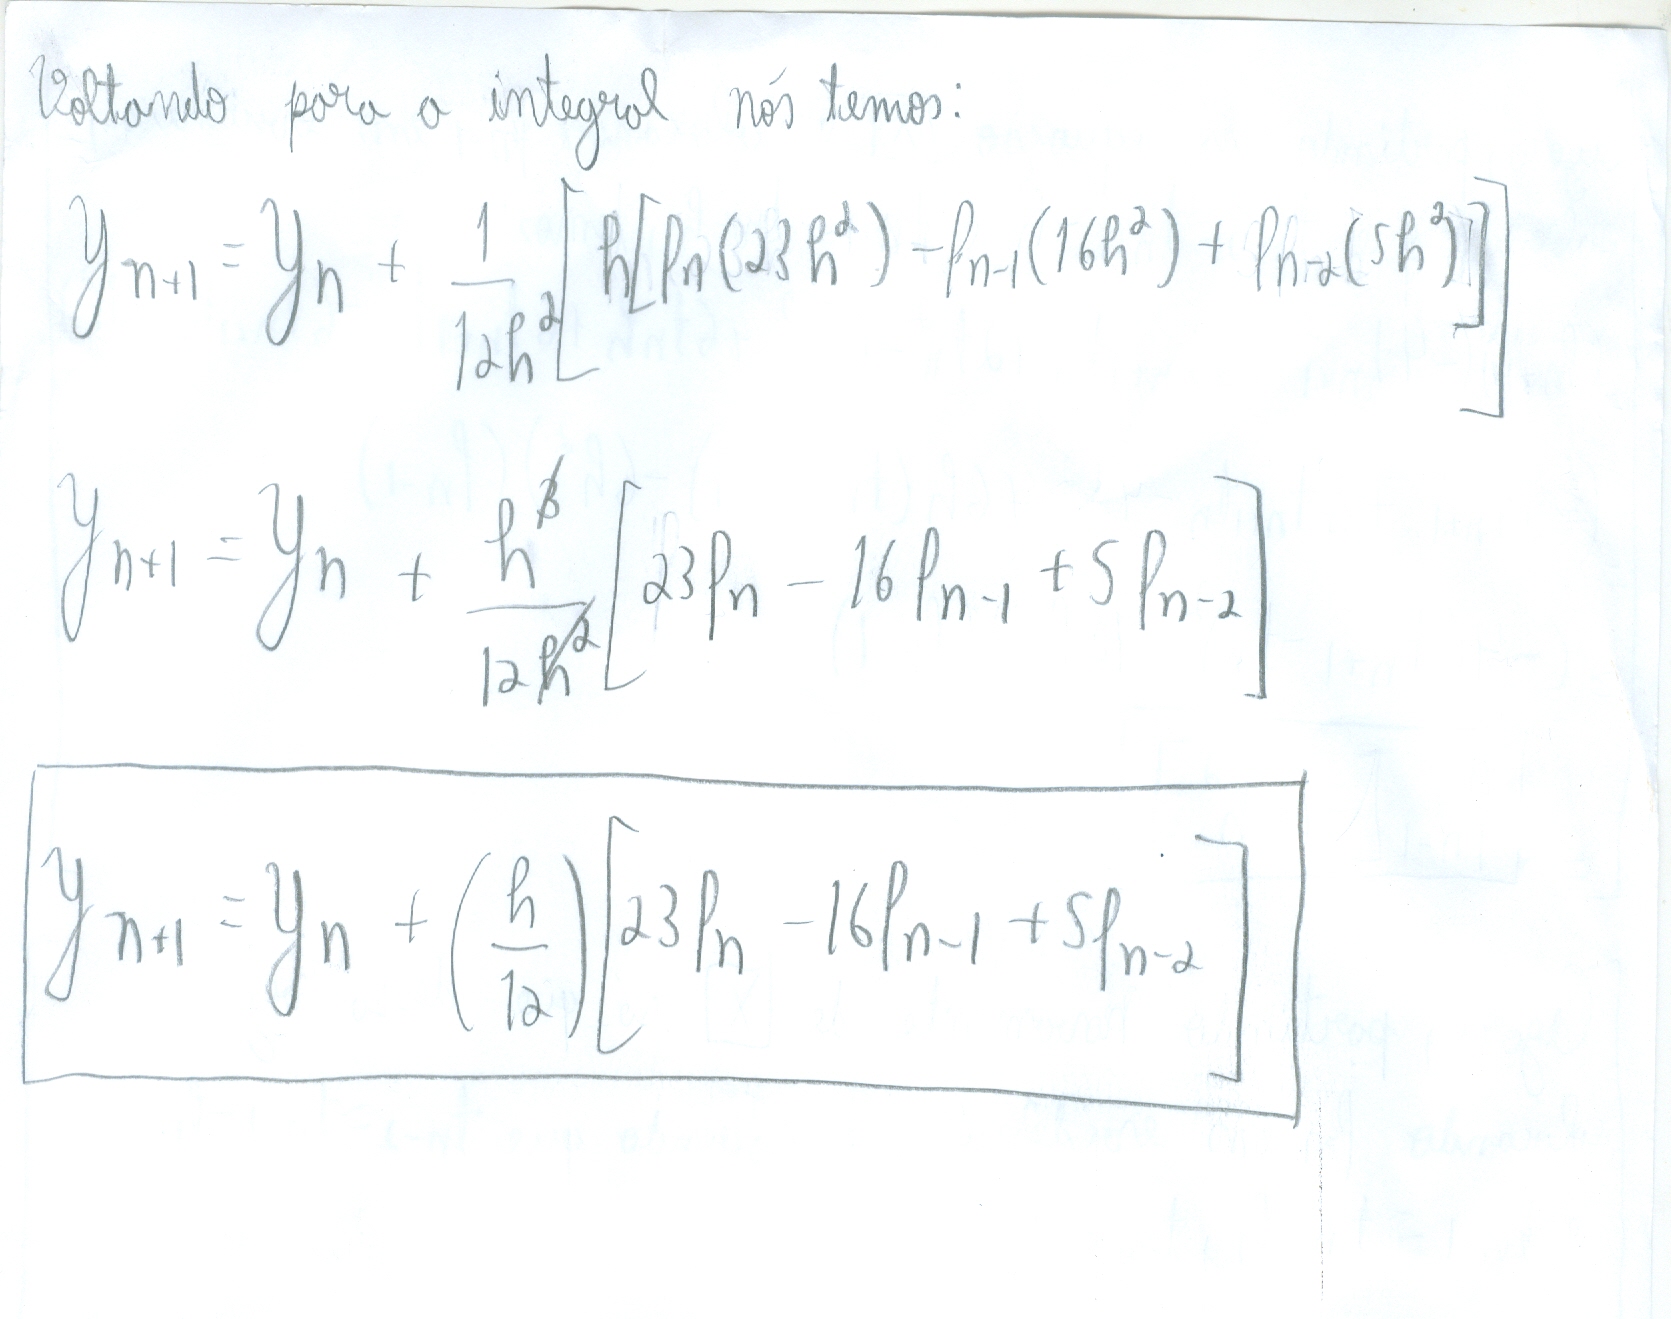 Voltando para a integral nós temos:
y_{n+1} = y_n + \frac{1}{12h^2} [ h[f_n(23h^2) - f_{n-1}(16h^2) + f_{n-2}(5h^2)] ]
y_{n+1} = y_n + \frac{h^3}{12h^2} [ 23f_n - 16f_{n-1} + 5f_{n-2} ]
y_{n+1} = y_n + (\frac{h}{12}) [ 23f_n - 16f_{n-1} + 5f_{n-2} ]